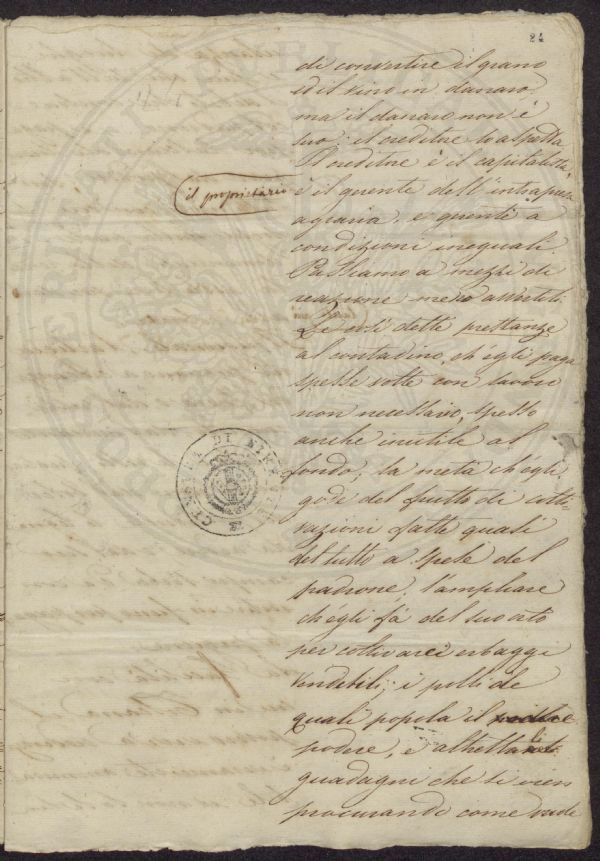 24
di convertire il grano
ed il vino in danaro,
ma il danaro non è
suo: il creditore lo aspetta.
Il creditore è il capitalista,
il proprietario
è il gerente dell'intrapresa
agraria, e gerente a
condizioni ineguali.
Passiamo a mezzi di
reazione meno avvertiti.
Le così dette prestanze
al contadino, ch'egli paga
spesse volte con lavori
non necessari, spesso
anche inutile al
fondo; la metà ch'egli
gode del frutto di colti-
vazioni fatte quasi
del tutto a spese del
padrone; l'ampliare
ch'egli fà del suo orto
per coltivarci erbaggi
vendibili; i polli de
quali popola il
podere, e altrettanti
guadagni che si vien
procurando come vuole